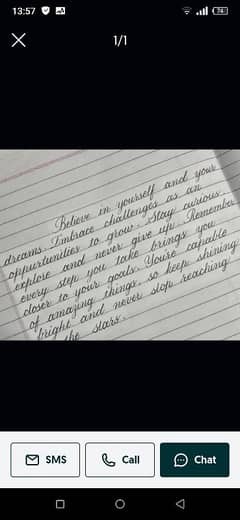 13:57
74
1/1
Believe in yourself and your
dreams. Embrace challenges as an
oppurtunities to grow. Stay curious,
explore and never give up. Remember
every step you take brings you
closer to your goals. You're capable
of amazing things, so keep shining
bright and never stop reaching
the stars.
SMS
Call
Chat